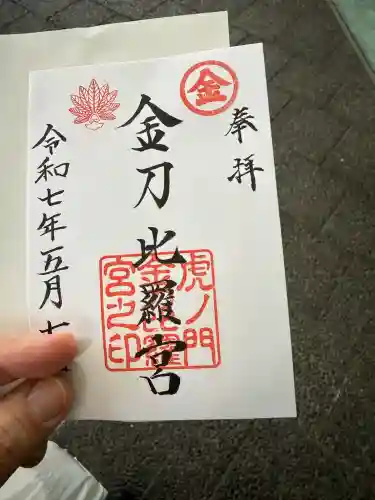 奉拝
金
金刀比羅宮
虎ノ門
金比羅
宮之印
令和七年五月七